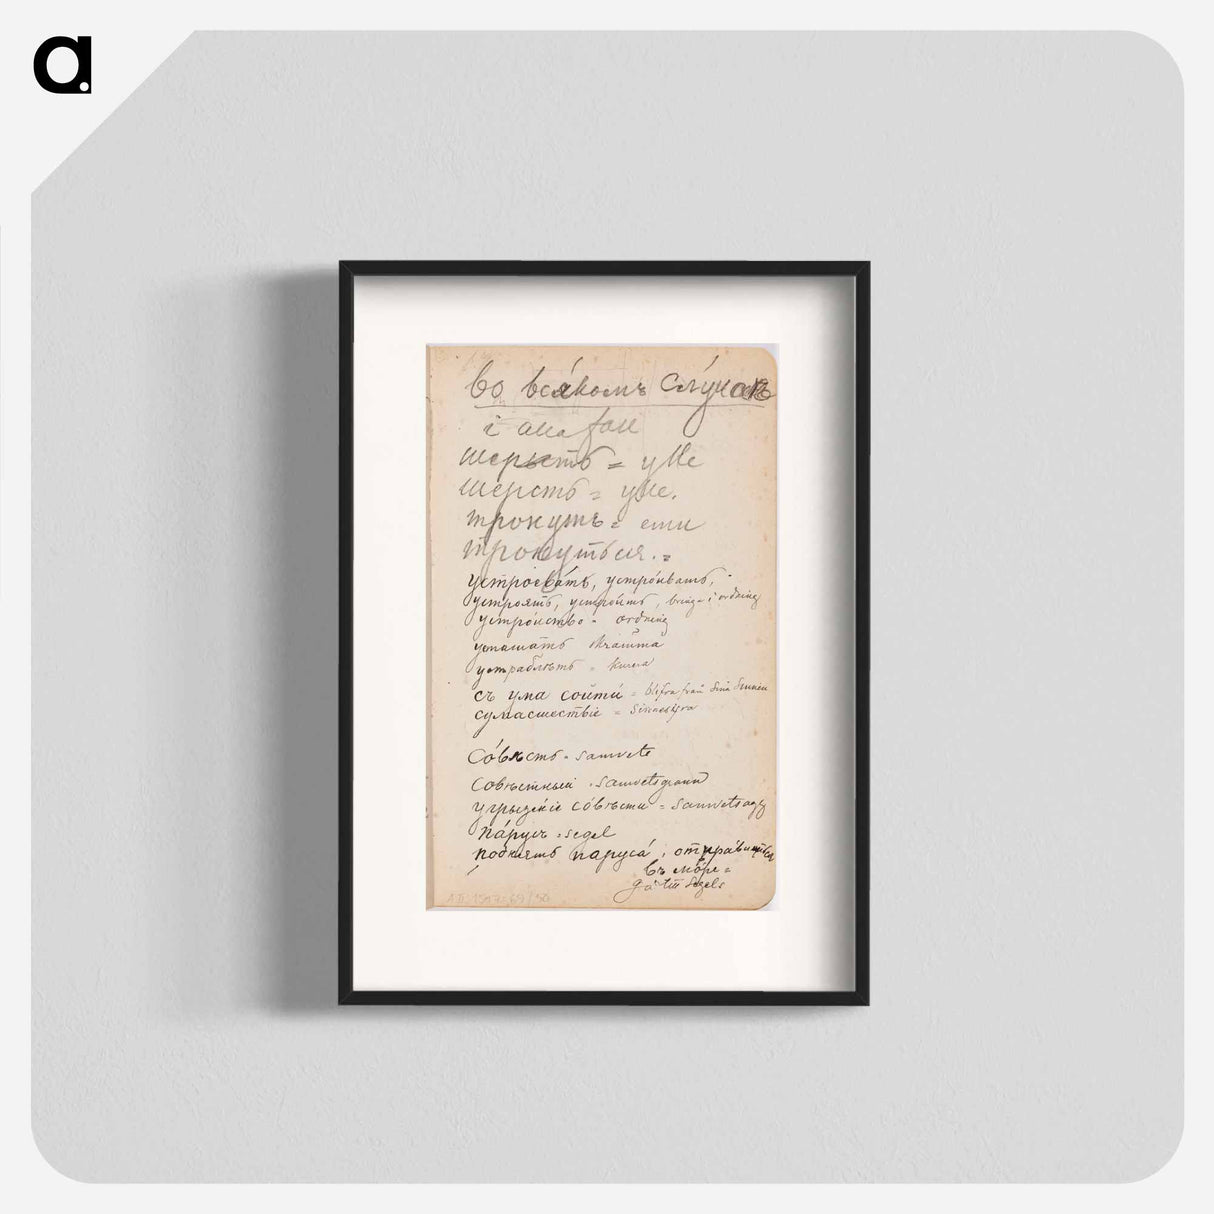 a.
во всякомъ случаѣ
i alla fall
шерьсть = ylle
шерсть = ylle.
тронуть =
тронуться. =
устроевать, устроивать,
устроять, устроить, bringa i ordning
устройство - ordning
устрашать skrämma
съ ума сойти = från sina sinnen
сумасшествіе =
со́вѣсть - samvete
совѣстный - samvetsgrann
угрызеніе со́вѣсти = samvetsagg
па́русъ = segel
поднять паруса́, отпра́виться
въ мо́ре =
gå till segels